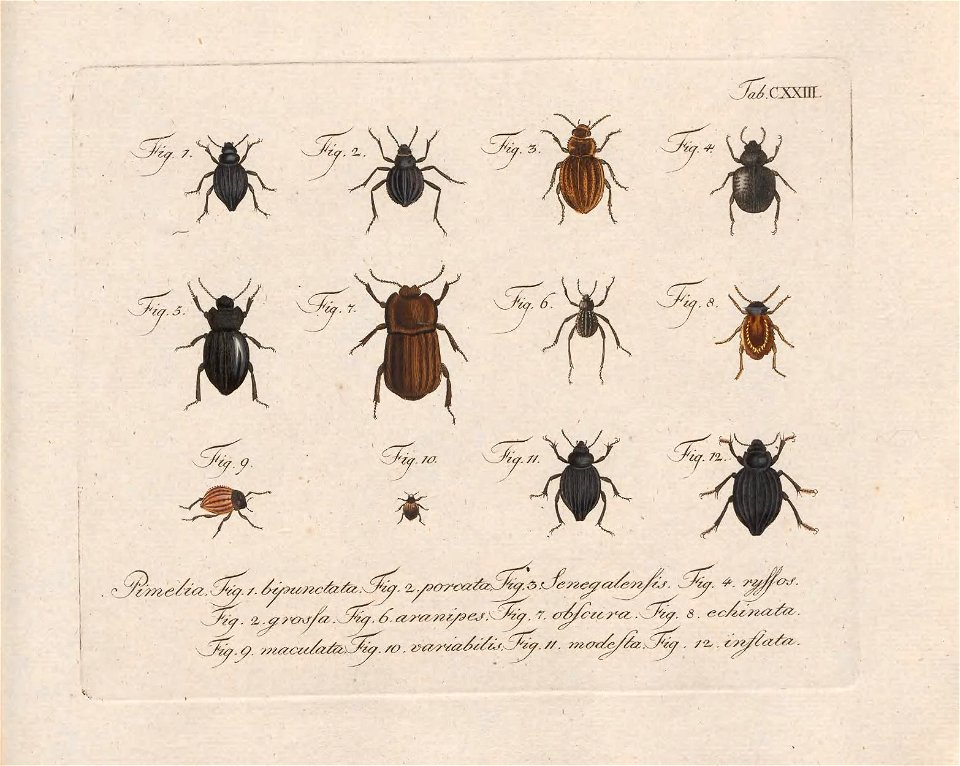 Tab. CXXIII.
Fig. 1. Fig. 2. Fig. 3. Fig. 4.
Fig. 5. Fig. 7. Fig. 6. Fig. 8.
Fig. 9. Fig. 10. Fig. 11. Fig. 12.
Pimelia. Fig. 1. bipunctata. Fig. 2. porcata. Fig. 3. Senegalenſis. Fig. 4. ryſſos.
Fig. 2. groſſa. Fig. 6. aranipes. Fig. 7. obſcura. Fig. 8. echinata.
Fig. 9. maculata. Fig. 10. variabilis. Fig. 11. modeſta. Fig. 12. inflata.